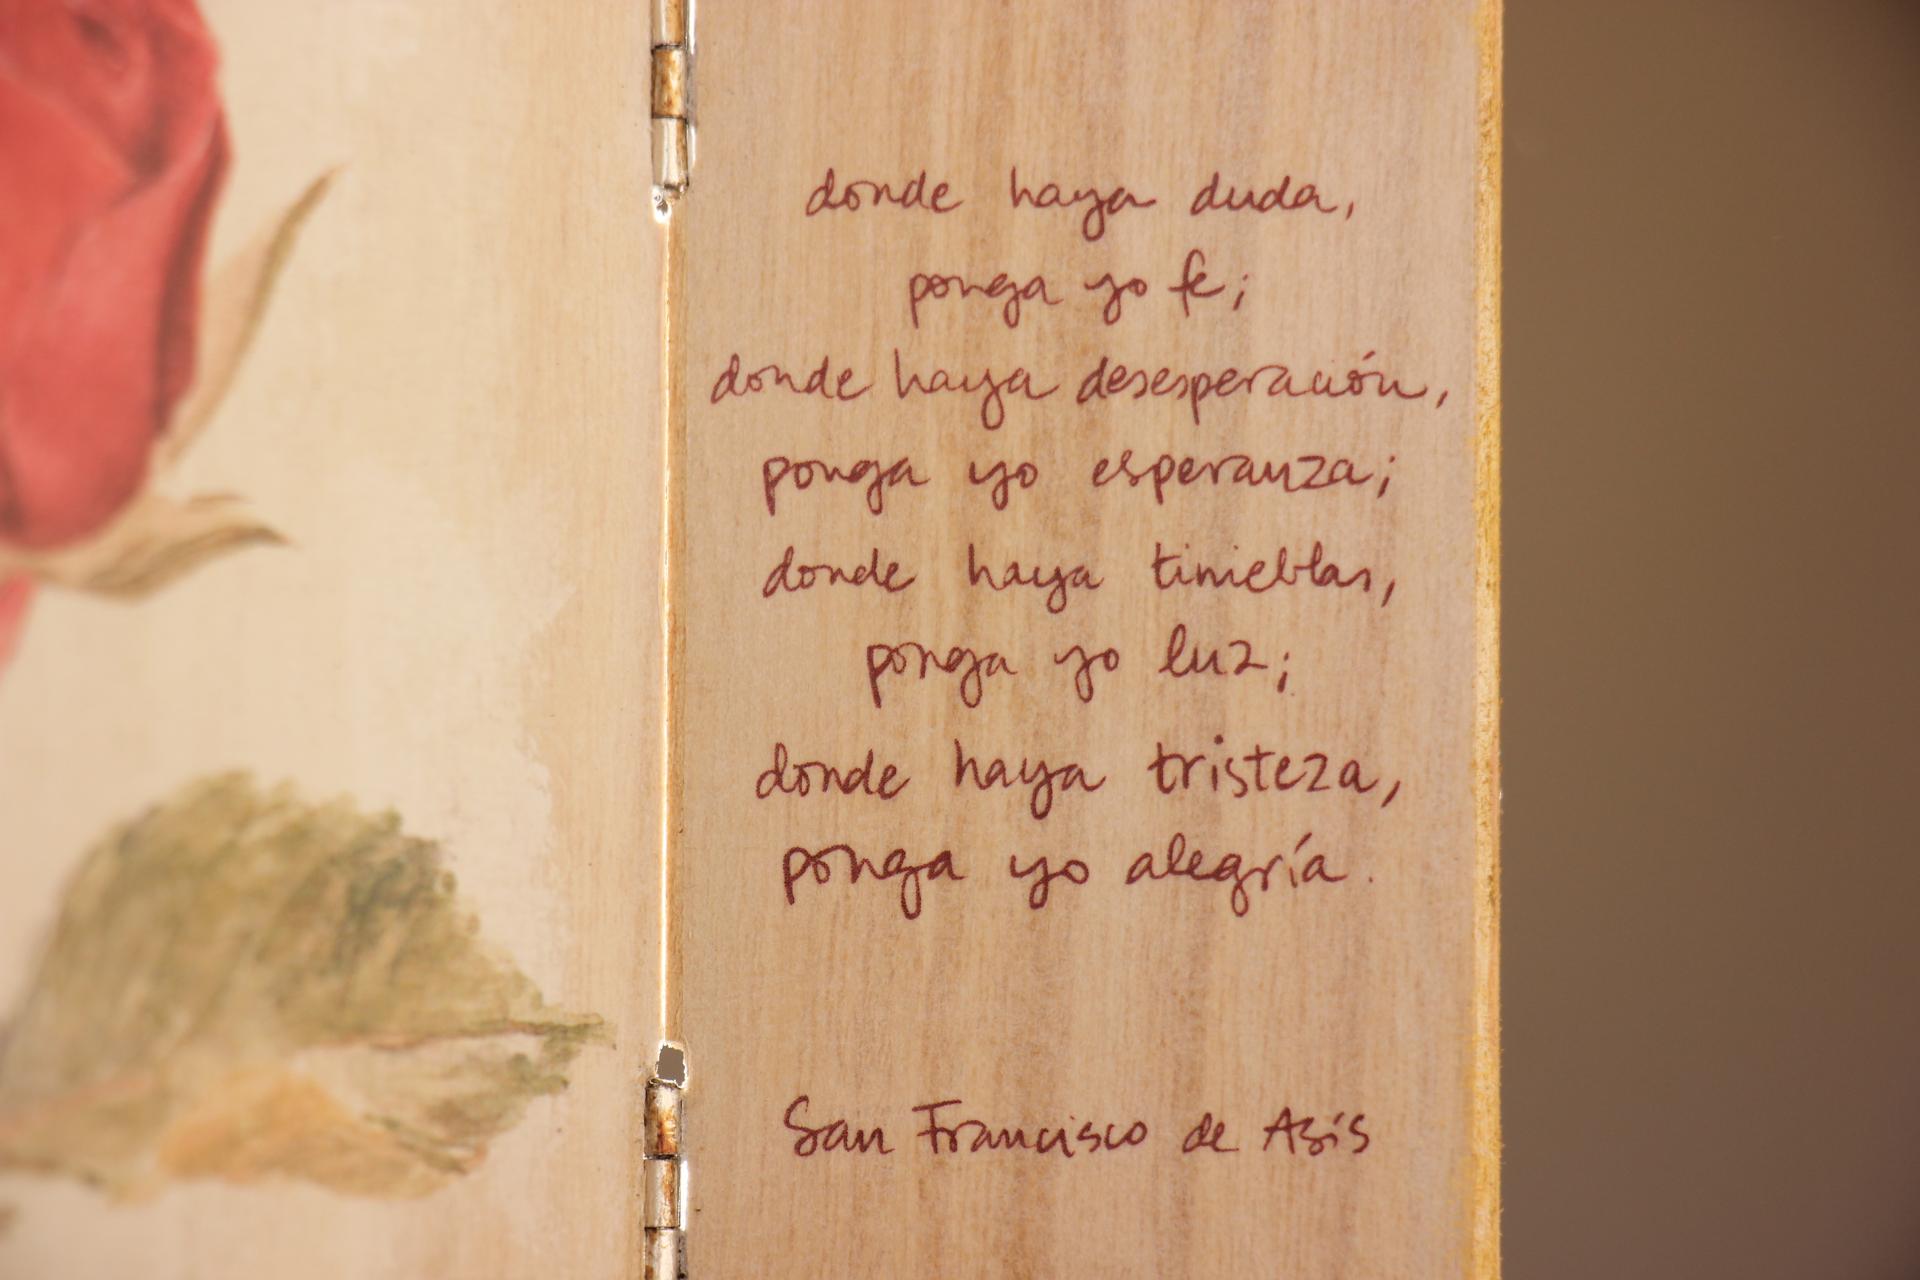 donde haya duda,
ponga yo fe;
donde haya desesperación,
ponga yo esperanza;
donde haya tinieblas,
ponga yo luz;
donde haya tristeza,
ponga yo alegría.
San Francisco de Asís